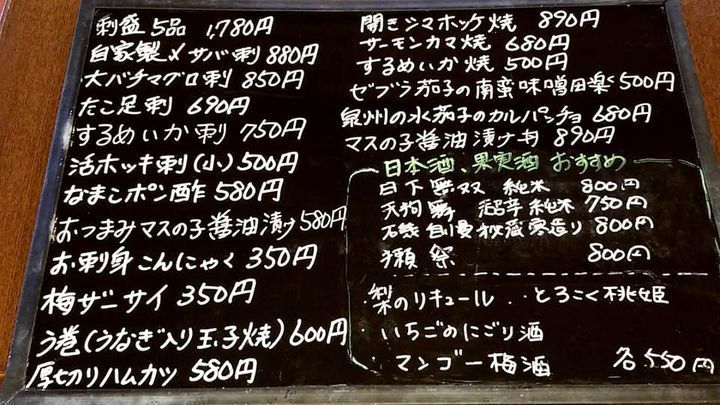 刺盛5品 1,780円
自家製〆サバ刺 880円
大バチマグロ刺 850円
たこ足刺 690円
するめいか刺 750円
活ホッキ刺(小) 500円
なまこポン酢 580円
おつまみマスの子醤油漬け 580円
お刺身こんにゃく 350円
梅ザーサイ 350円
う巻(うなぎ入り玉子焼) 600円
厚切りハムカツ 580円
開きシマホッケ焼 890円
サーモンカマ焼 680円
するめいか焼 500円
ゼブラ茄子の南蛮味噌田楽 500円
泉州の水茄子のカルパッチョ 680円
マスの子醤油漬け丼 890円
日本酒、果実酒 おすすめ
日下無双 純米 800円
天狗舞 超辛純米 750円
磯自慢 秘蔵寒造り 800円
獺祭 800円
梨のリキュール ・・とろこく桃姫
・いちごのにごり酒
・マンゴー梅酒 各550円